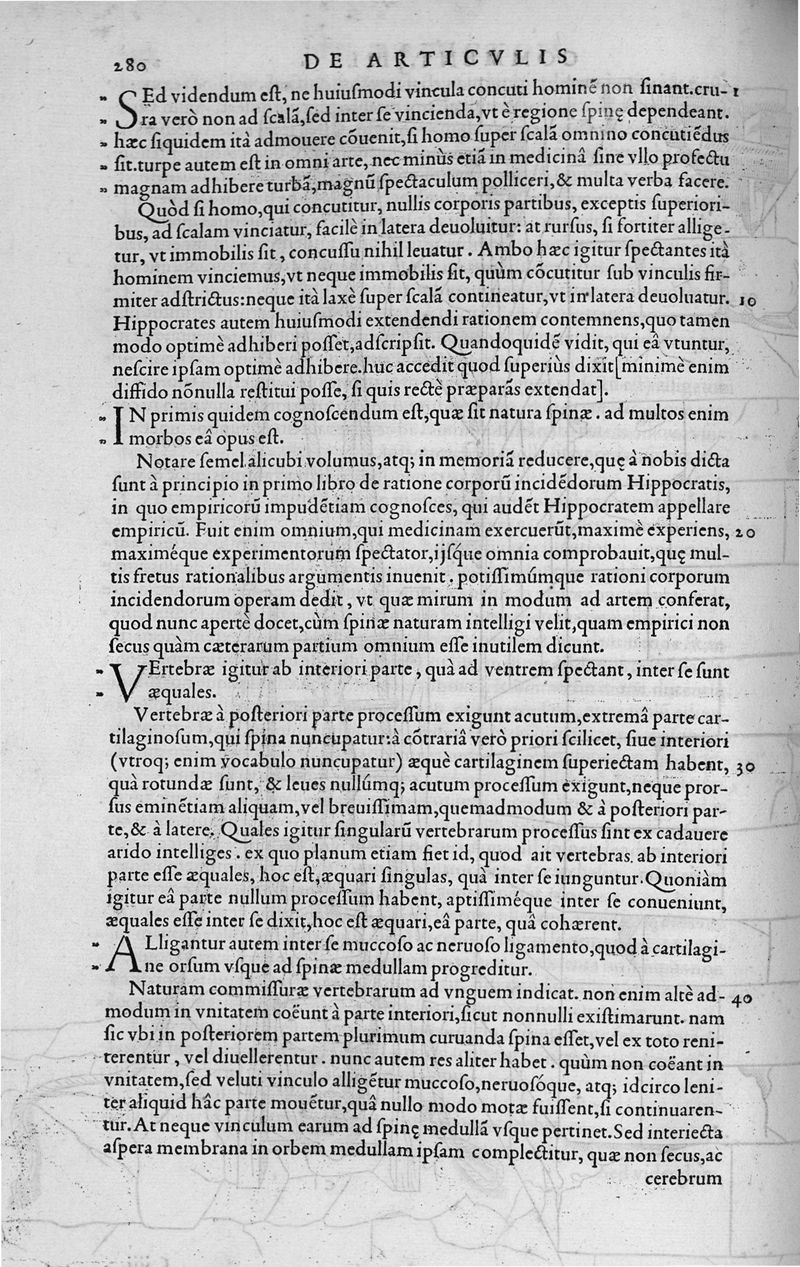 280 DE ARTICVLIS
„ SEd videndum eſt, ne huiuſmodi vincula concuti hominẽ non ſinant.cru- 1
„ ra verò non ad ſcalã,ſed inter ſe vincienda,vt è regione ſpinę dependeant.
„ hæc ſiquidem ità admouere cõuenit,ſi homo ſuper ſcalã omnino concutiẽdus
„ ſit.turpe autem eſt in omni arte, nec minùs etiã in medicinâ ſine vllo profectu
„ magnam adhibere turbã,magnũ ſpectaculum polliceri,& multa verba facere.
Quòd ſi homo,qui concutitur, nullis corporis partibus, exceptis ſuperiori-
bus, ad ſcalam vinciatur, facilè in latera deuoluitur: at rurſus, ſi fortiter allige-
tur, vt immobilis ſit, concuſſu nihil leuatur. Ambo hæc igitur ſpectantes ità
hominem vinciemus,vt neque immobilis ſit, quùm cõcutitur ſub vinculis fir-
miter adſtrictus:neque ità laxè ſuper ſcalã contineatur,vt in latera deuoluatur. 10
Hippocrates autem huiuſmodi extendendi rationem contemnens,quo tamen
modo optimè adhiberi poſſet,adſcripſit. Quandoquidẽ vidit, qui eâ vtuntur,
neſcire ipſam optimè adhibere.huc accedit quod ſuperiùs dixit[minimè enim
diffido nõnulla reſtitui poſſe, ſi quis rectè præparãs extendat].
„ IN primis quidem cognoſcendum eſt,quæ ſit natura ſpinæ. ad multos enim
„ morbos eâ opus eſt.
Notare ſemel alicubi volumus,atq; in memoriã reducere,quę à nobis dicta
ſunt à principio in primo libro de ratione corporũ incidẽdorum Hippocratis,
in quo empiricorũ impudẽtiam cognoſces, qui audẽt Hippocratem appellare
empiricũ. Fuit enim omnium,qui medicinam exercuerũt,maximè experiens, 20
maximéque experimentorum ſpectator,ijſque omnia comprobauit,quę mul-
tis fretus rationalibus argumentis inuenit. potiſſimúmque rationi corporum
incidendorum operam dedit, vt quæ mirum in modum ad artem conferat,
quod nunc apertè docet,cùm ſpinæ naturam intelligi velit,quam empirici non
ſecus quàm cæterarum partium omnium eſſe inutilem dicunt.
„ VErtebræ igitur ab interiori parte, quà ad ventrem ſpectant, inter ſe ſunt
„ æquales.
Vertebræ à poſteriori parte proceſſum exigunt acutum,extremâ parte car-
tilaginoſum,qui ſpina nuncupatur:à cõtrariâ verò priori ſcilicet, ſiue interiori
(vtroq; enim vocabulo nuncupatur) æquè cartilaginem ſuperiectam habent, 30
quà rotundæ ſunt, & leues nullúmq; acutum proceſſum exigunt,neque pror-
ſus eminẽtiam aliquam,vel breuiſſimam,quemadmodum & à poſteriori par-
te,& à latere. Quales igitur ſingularũ vertebrarum proceſſus ſint ex cadauere
arido intelliges. ex quo planum etiam fiet id, quod ait vertebras ab interiori
parte eſſe æquales, hoc eſt,æquari ſingulas, quà inter ſe iunguntur.Quoniàm
igitur eâ parte nullum proceſſum habent, aptiſſiméque inter ſe conueniunt,
æquales eſſe inter ſe dixit,hoc eſt æquari,eâ parte, quâ cohærent.
„ ALligantur autem inter ſe muccoſo ac neruoſo ligamento,quod à cartilagi-
„ ne orſum vſque ad ſpinæ medullam progreditur.
Naturam commiſſuræ vertebrarum ad vnguem indicat. non enim altè ad- 40
modum in vnitatem coëunt à parte interiori,ſicut nonnulli exiſtimarunt. nam
ſic vbi in poſteriorem partem plurimum curuanda ſpina eſſet,vel ex toto reni-
terentur, vel diuellerentur. nunc autem res aliter habet. quùm non coëant in
vnitatem,ſed veluti vinculo alligẽtur muccoſo,neruoſóque, atq; idcirco leni-
ter aliquid hâc parte mouẽtur,quâ nullo modo motæ fuiſſent,ſi continuaren-
tur. At neque vinculum earum ad ſpinę medullã vſque pertinet. Sed interiecta
aſpera membrana in orbem medullam ipſam complectitur, quæ non ſecus,ac
cerebrum